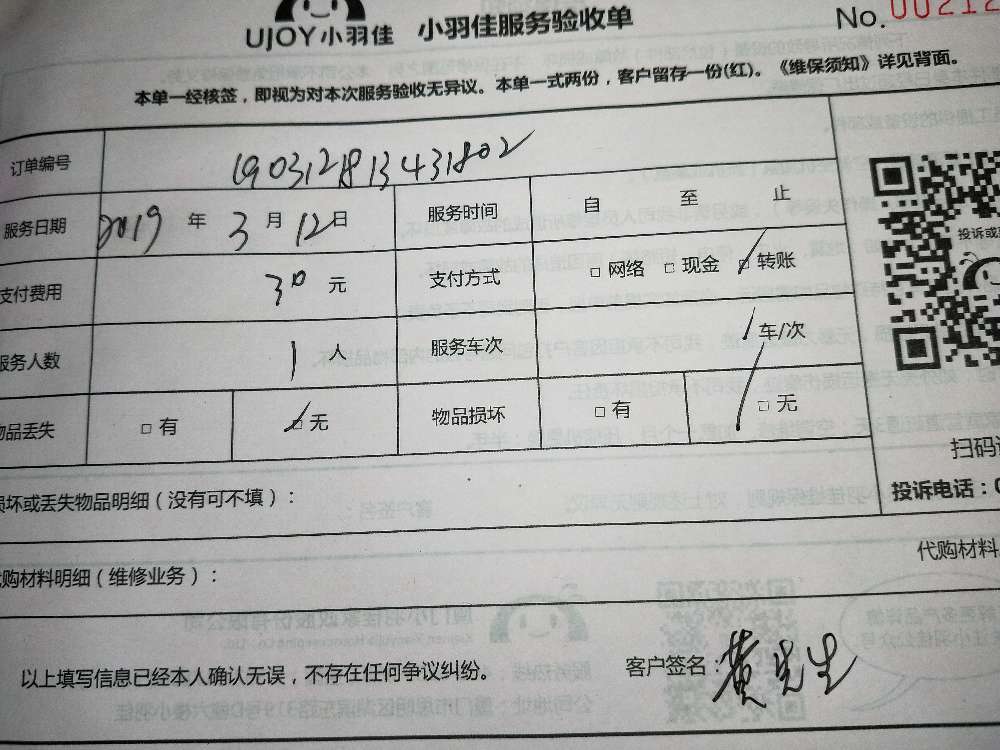 UJOY小羽佳 小羽佳服务验收单 No. 00212
本单一经核签，即视为对本次服务验收无异议。本单一式两份，客户留存一份(红)。《维保须知》详见背面。
订单编号 190312813431802
服务日期 2019 年 3 月 12 日 服务时间 自 至 止
支付费用 30 元 支付方式 □ 网络 □ 现金 □ 转账
服务人数 1 人 服务车次 1 车/次
物品丢失 □ 有 □ 无 物品损坏 □ 有 □ 无
投诉或
扫码
损坏或丢失物品明细（没有可不填）：
投诉电话：0
代购材料明细（维修业务）： 代购材料
以上填写信息已经本人确认无误，不存在任何争议纠纷。 客户签名：黄先生